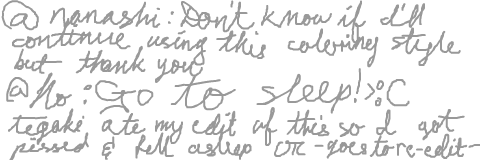 @ nanashi: Don't know if I'll
continue using this coloring style
but thank you
@ No : Go to sleep! >:C
tegaki ate my edit of this so I got
pissed & fell asleep OTL -goes to re-edit-